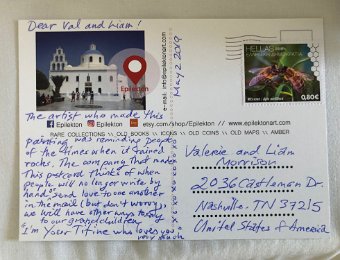 Dear Val and Liam!
Epilekton
The artist who made this
Epilekton Epilekton etsy.com/shop/Epilekton // www.epilektonart.com
RARE COLLECTIONS \\ OLD BOOKS \\ ICONS \\ OLD COINS \\ OLD MAPS \\ AMBER
painting was reminding people
of the times when it rained
rocks. The company that made
this postcard thinks of when
people will no longer write by
hand, send love to one another
in the mail (but don't worry,
we will have other ways to say
to our grandchildren
"I'm your Titine who loves you
very much
May 2, 2019
e-mail: info@epilektonart.com
HELLAS
0,80€
Valerie and Liam
Morrison
2036 Castleman Dr.
Nashville, TN 37215
United States of America